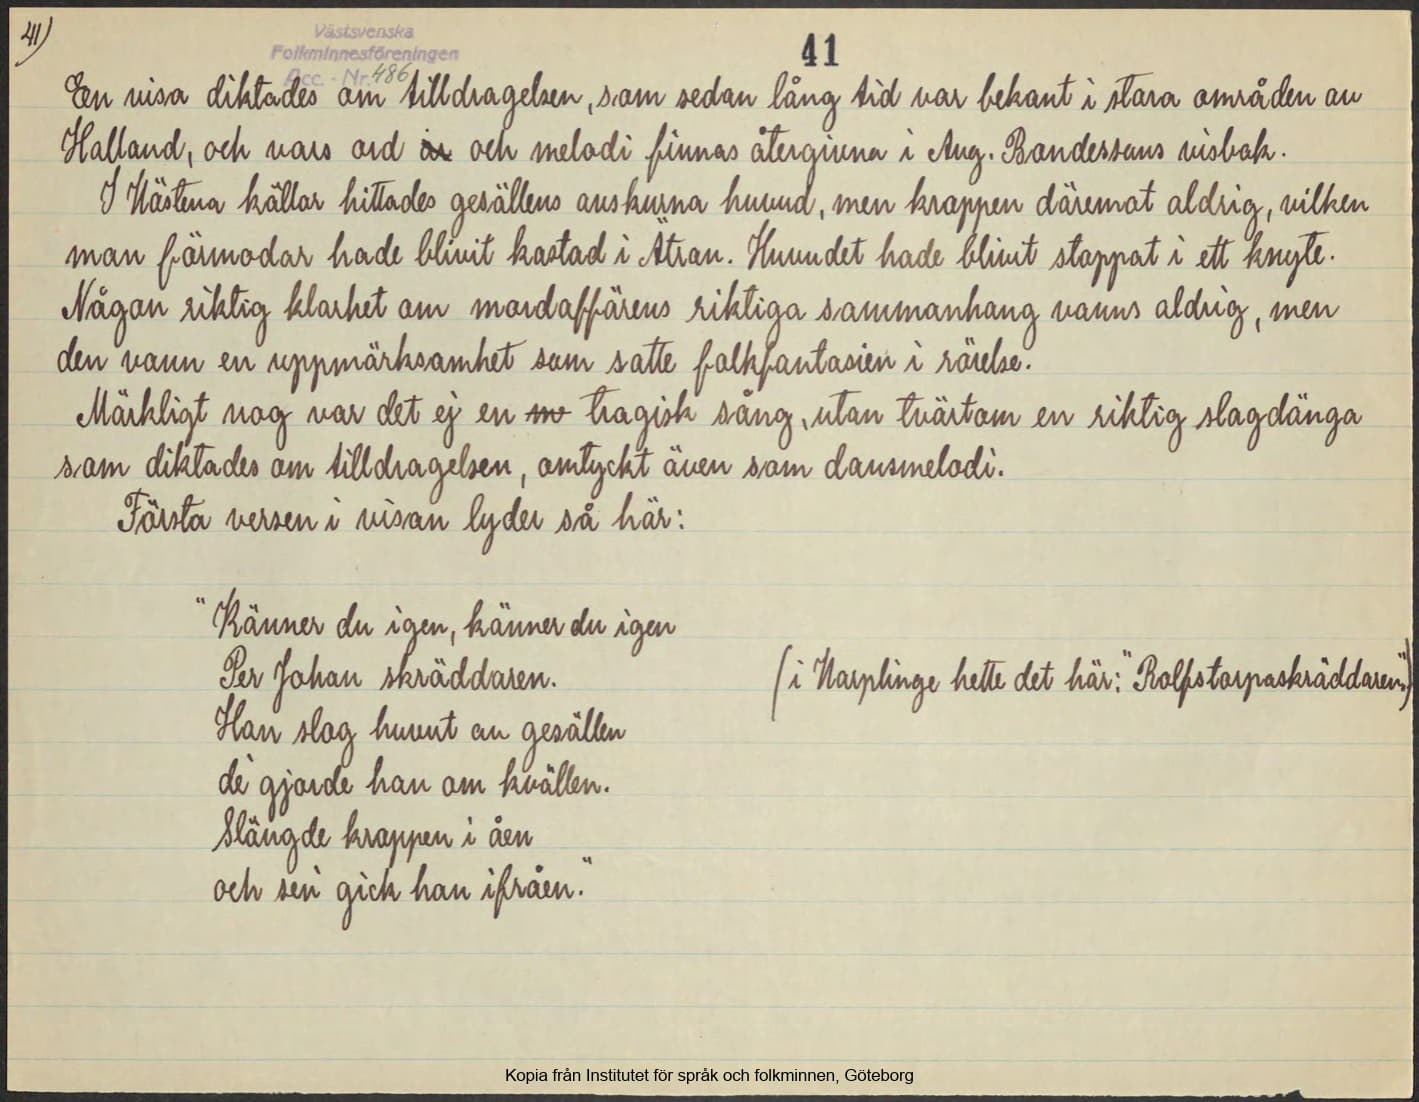 41)
Västsvenska
Folkminnesföreningen
Acc. - Nr. 486
41
En visa diktades om tilldragelsen, som sedan lång tid var bekant i stora områden av
Halland, och vars ord är och melodi finnas återgivna i Aug. Bondessons visbok.
I Nästena källar hittades gesällens avskurna huvud, men kroppen däremot aldrig, vilken
man förmodar hade blivit kastad i Ätran. Huvudet hade blivit stoppat i ett knyte.
Någon riktig klarhet om mordaffärens riktiga sammanhang vanns aldrig, men
den vann en uppmärksamhet som satte folkfantasien i rörelse.
Märkligt nog var det ej en m tragisk sång, utan tvärtom en riktig slagdänga
som diktades om tilldragelsen, omtyckt även som dansmelodi.
Första versen i visan lyder så här:
"Känner du igen, känner du igen
Per Johan skräddaren.
(i Harplinge hette det här: "Rolfstorpaskräddaren.")
Han slog huvut av gesällen
de' gjorde han om kvällen.
Slängde kroppen i åen
och sen' gick han ifråen."
Kopia från Institutet för språk och folkminnen, Göteborg